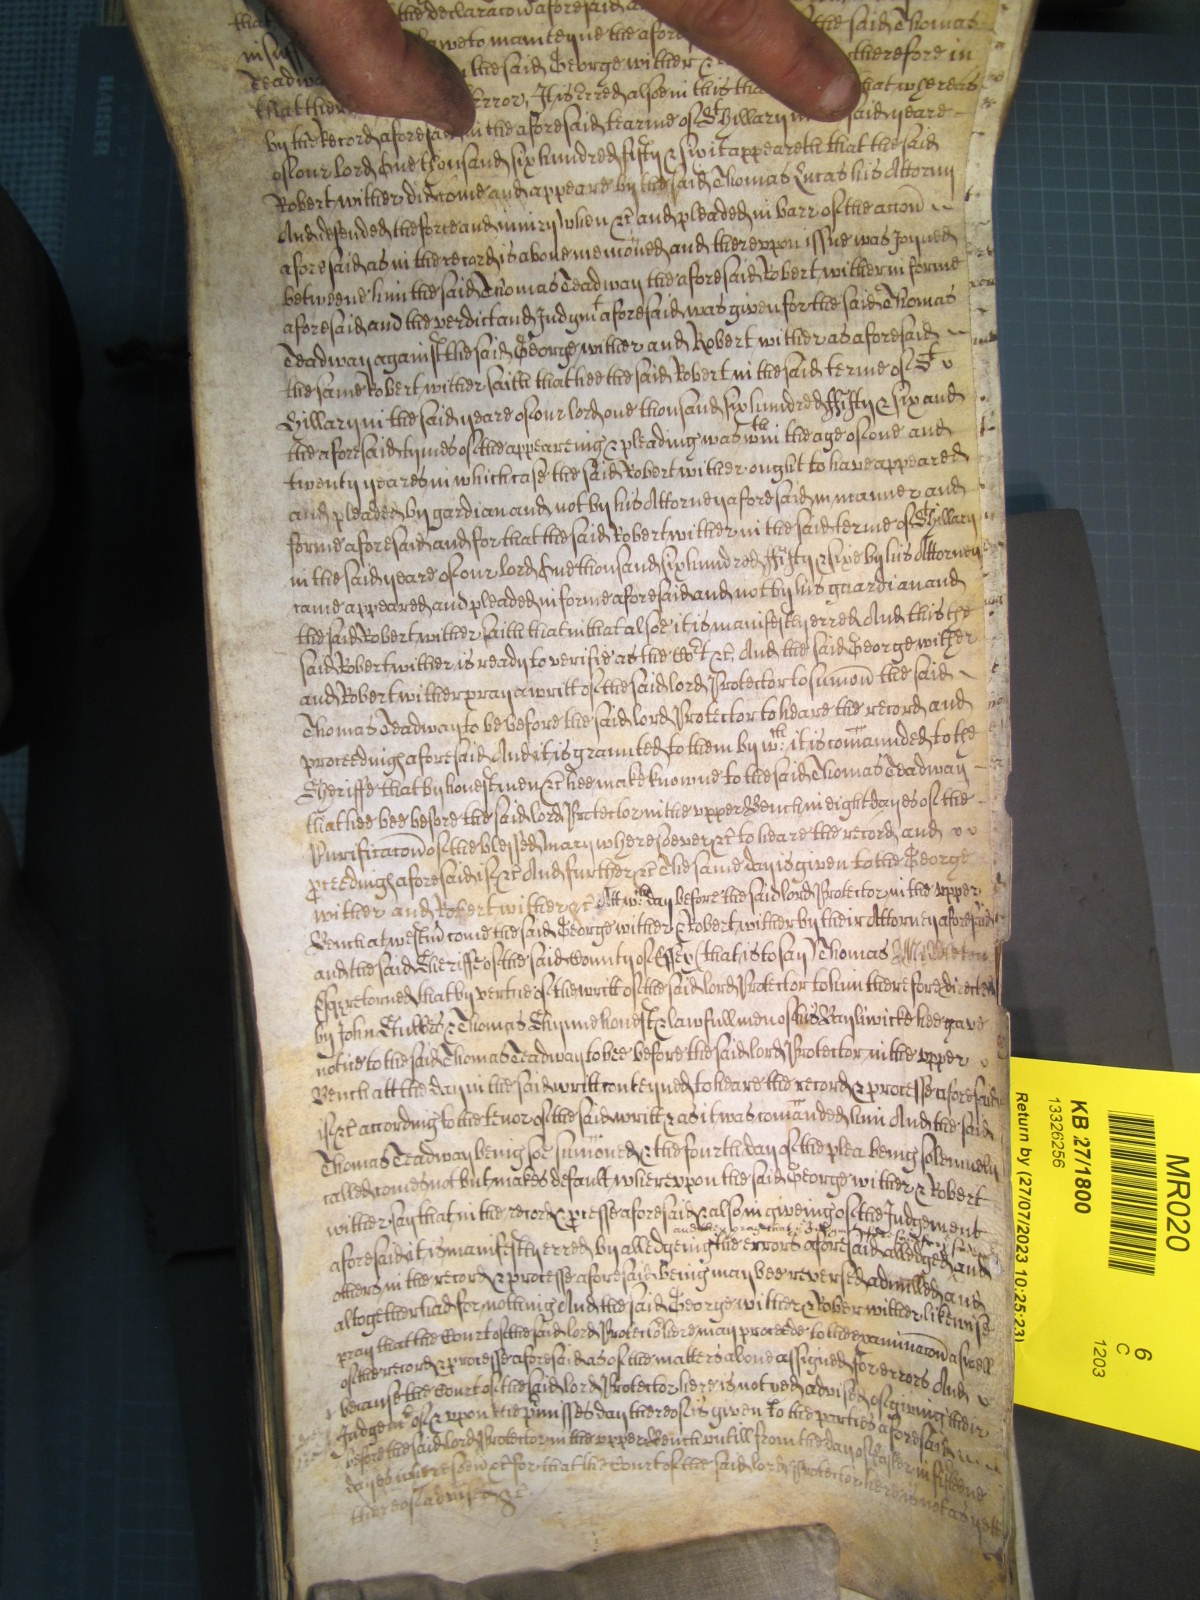 the declaracon aforesaid
in suff lawe to mainteyne the afore the said Thomas
Teadway the said George wither &c therefore in
that ther Error, It is erred alsoe in this tha that whereas
by the Record aforesaid in the aforesaid tearme of St Hillary in said yeare
of our lord One thousand six hundred fifty & six it appeareth that the said
Robert wither did come and appeare by the said Thomas Lucas his Attorny
And defended the force and iniury when &c and pleaded in barr of the accon
aforesaid as in the record is above mencioned and thereupon issue was Joyned
betweene him the said Thomas Teadway the aforesaid Robert wither in forme
aforesaid and the verdict and Judgmt aforesaid was given for the said Thomas
Teadway against the said George wither and Robert wither as aforesaid
the same Robert wither saith that hee the said Robert in the said terme of St
Hillary in the said yeare of our lord one thousand six hundred ffifty & six and
the aforesaid tymes of the appeareing & pleading was wthin the age of one and
twenty yeares in which case the said Robert wither ought to have appeared
and pleaded by gardian and not by his Attorney aforesaid in manner and
forme aforesaid and for that the said Robert wither in the said terme of St Hillary
in the said yeare of our lord One thousand six hundred ffifty & sixe by his Attorney
came appeared and pleaded in forme aforesaid and not by his guardian and
the said Robert wither saith that in that alsoe it is manifestly erred And this the
said Robert wither is ready to verifie as the Cort &c, And the said George wither
and Robert wither pray a writt of the said lord Protector to sumon the said
Thomas Teadway to be before the said lord Protector to heare the record and
proceedings aforesaid And it is graunted to them by wch it is comaunded to the
Sheriffe that by honest men &c hee make knowne to the said Thomas Teadway
that hee bee before the said lord Protector in the upper Bench in eight dayes of the
Purificacon of the blessed mary wheresoever &c to heare the record and
proceedings aforesaid if &c And further &c The same day is given to the George
wither and Robert wither &c Att wch day before the said lord Protector in the upper
Bench at westm come the said George wither & Robert wither by their Attorney aforesaid
and the said Sheriffe of the said County of Essex (that is to say) Thomas Middleton
Esqr retorned that by vertue of the writt of the said lord Protector to him therefore directed
by John Stubbs & Thomas Thynne honest & lawfull men of his Bayliwicke hee gave
notice to the said Thomas Teadway to bee before the said lord Protector in the upper
Bench att the day in the said writt conteyned to heare the record & processe aforesaid
if &c according to the tenor of the said writt & as it was comanded him And the said
Thomas Teadway being soe sumoned & the fourth day of the plea being solemnely
called come not but makes default whereupon the said George wither & Robert
wither say that in the record & processe aforesaid & also in giveing of the Judgement
aforesaid it is manifestly erred by alledgeing the errors aforesaid alledged and
and they pray that the Judgmt
others in the record & processe aforesaid being may bee reversed adnulled and
altogether had for nothing And the said George wither & Rober wither likewise
pray that the Court of the said lord Protector here may proceede to the examinacon aswell
of the record & processe aforesaid as of the matters above assigned for errors And
because the Court of the said lord Protector here is not yed advised of giving their
Judgemt of & upon the pmisses day thereof is given to the parties aforesaid
before the said lord Protector in the upper Bench untill from the day of Easter in fifteene
dayes wheresoevr &c for that the Court of the said lord Protector here is not as yett
thereof advised &c
KAISER
MR020
KB 27/1800
13326256
Return by (27/07/2023 10:25:23)
6
C
1203